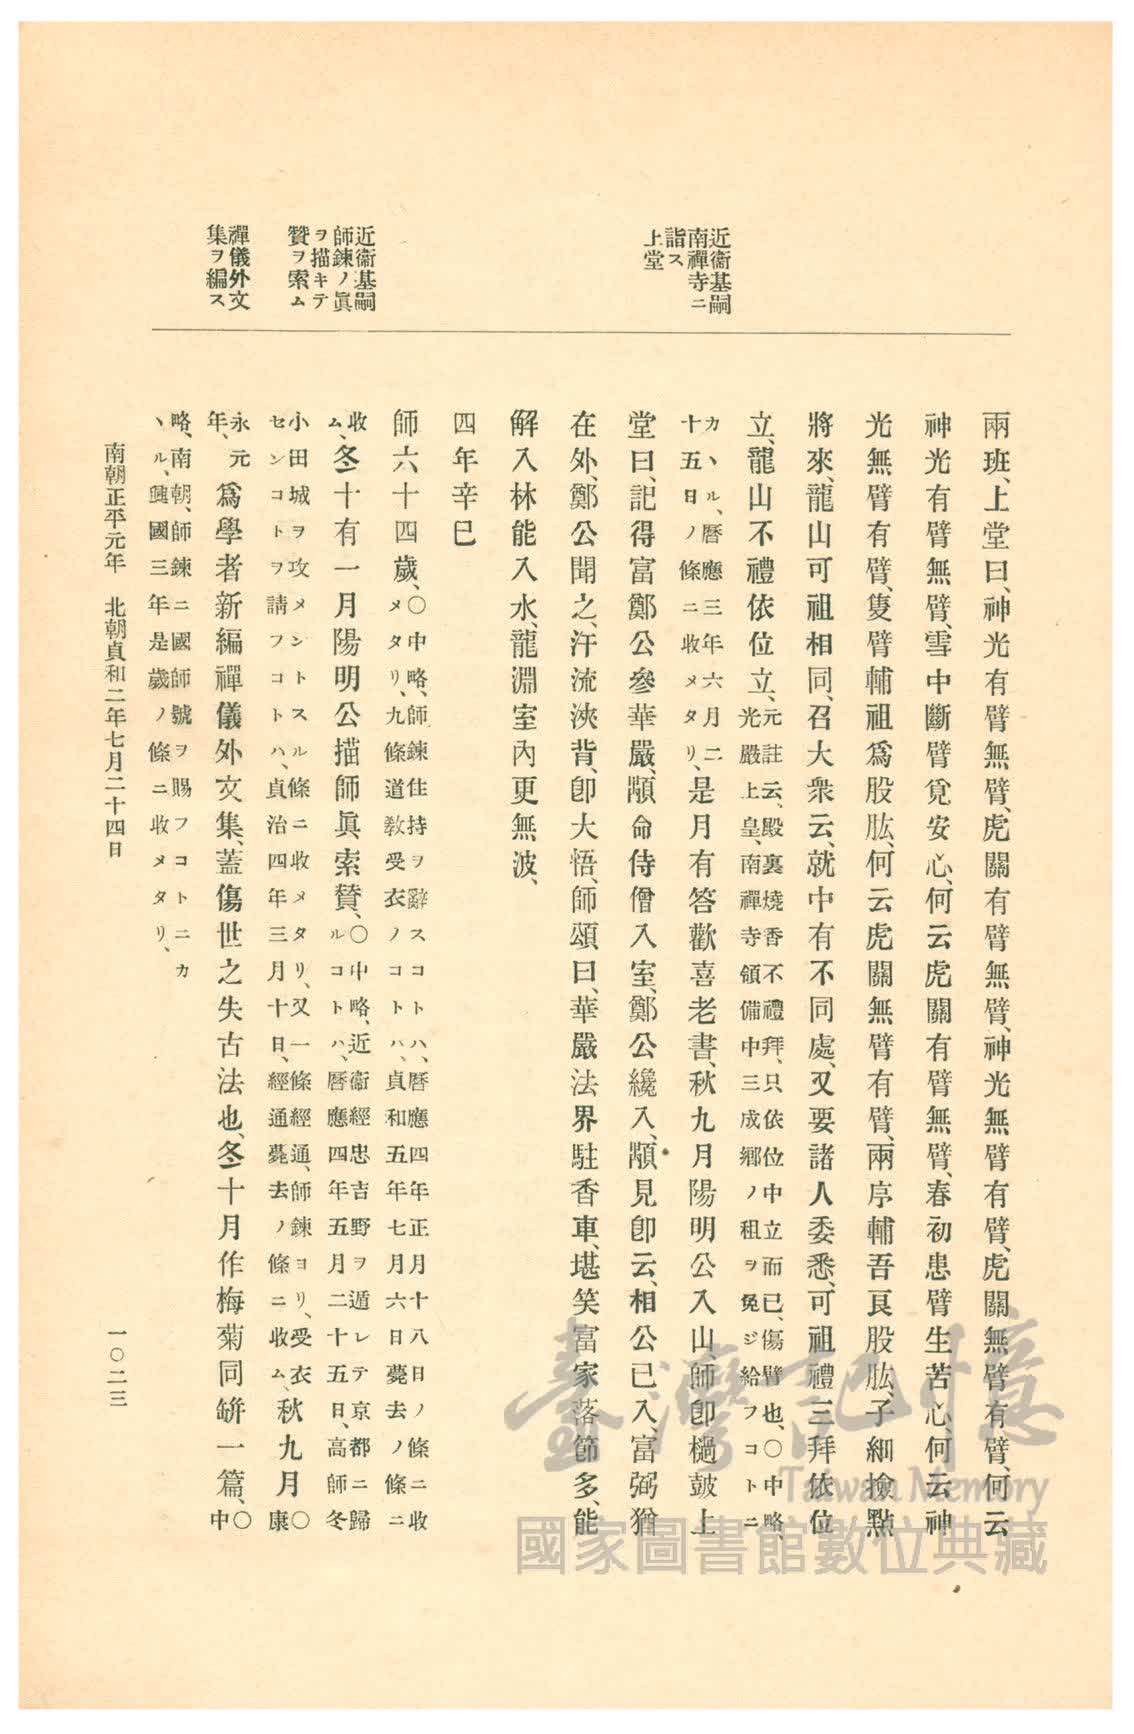 近衞基嗣
南禪寺ニ
詣ス
上堂
近衞基嗣
師鍊ノ眞
ヲ描キテ
贊ヲ索ム
禪儀外文
集ヲ編ス
兩班、上堂曰、神光有臂無臂、虎關有臂無臂、神光無臂有臂、虎關無臂有臂、何云
神光有臂無臂、雪中斷臂覓安心、何云虎關有臂無臂、春初患臂生苦心、何云神
光無臂有臂、隻臂輔祖爲股肱、何云虎關無臂有臂、兩序輔吾良股肱、子細撿點
將來、龍山可祖相同、召大衆云、就中有不同處、又要諸人委悉、可祖禮三拜依位
立、龍山不禮依位立、元註云、殿裏燒香不禮拜、只依位中立而已、傷臂也、〇中略、
光嚴上皇、南禪寺領備中三成鄉ノ租ヲ免ジ給フコトニ
カヽル、曆應三年六月二
十五日ノ條ニ收メタリ、是月有答歡喜老書、秋九月陽明公入山、師卽槌鼓上
堂曰、記得富鄭公參華嚴、顒命侍僧入室、鄭公纔入、顒見卽云、相公已入、富弼猶
在外、鄭公聞之、汗流浹背、卽大悟、師頌曰、華嚴法界駐香車、堪笑富家落節多、能
解入林能入水、龍淵室內更無波、
四年辛巳
師六十四歲、〇中略、師鍊住持ヲ辭スコトハ、曆應四年正月十八日ノ條ニ收
メタリ、九條道敎受衣ノコトハ、貞和五年七月六日薨去ノ條ニ
收
ム、冬十有一月陽明公描師眞索贊、〇中略、近衞經忠吉野ヲ遁レテ京都ニ歸
ルコトハ、曆應四年五月二十五日、高師冬
小田城ヲ攻メントスル條ニ收メタリ、又一條經通、師鍊ヨリ、受衣
センコトヲ請フコトハ、貞治四年三月十日、經通薨去ノ條ニ收ム、秋九月〇
康
永元
年、爲學者新編禪儀外文集、蓋傷世之失古法也、冬十月作梅菊同缾一篇、〇
中
略、南朝、師鍊ニ國師號ヲ賜フコトニカ
ヽル、興國三年是歲ノ條ニ收メタリ、
南朝正平元年　北朝貞和二年七月二十四日
一〇二三
臺灣記憶
Taiwan Memory
國家圖書館數位典藏